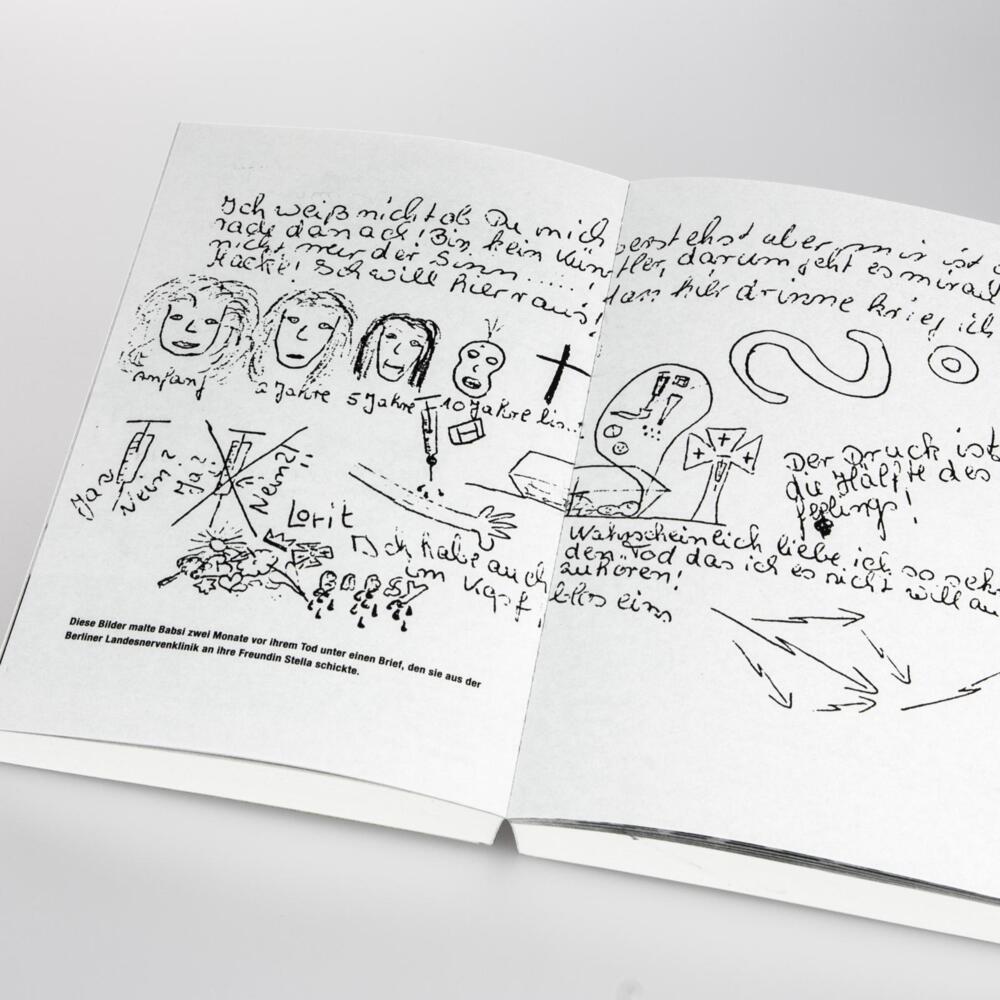 Ich weiß nicht ob Du mich verstehst aber mir ist
rade danach! Bin kein Künstler, darum geht es mir
nicht nur der Sinn.....,
Hacke! Ich will hier raus! dann hier drinne krieg ich
Anfang
2 Jahre 5 Jahre 10 Jahre bis...
Ja?
Nein?
Ja?
Nein?!
Lorit
Ich habe auch
im Kopf
Der Druck ist
die Hälfte des
feelings!
Wahrscheinlich liebe ich so sehr
den Tod das ich es nicht will
zuhören!
eins
Diese Bilder malte Babsi zwei Monate vor ihrem Tod unter einen Brief, den sie aus der
Berliner Landesnervenklinik an ihre Freundin Stella schickte.